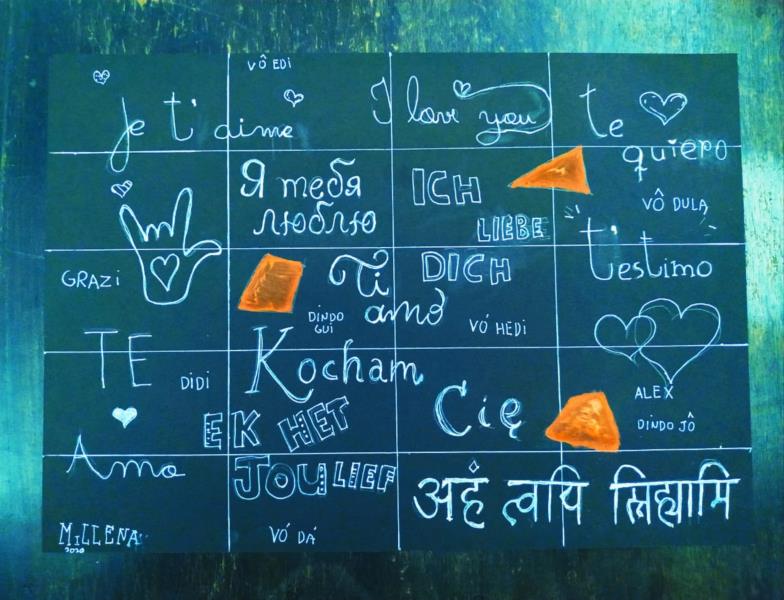 VÔ EDI
je t'aime
I love you
te quiero
Я тебя
люблю
ICH
LIEBE
DICH
VÔ DULA
t'estimo
GRAZI
Ti
amo
DINDO
GUI
VÓ HEDI
TE
DIDI
Amo
Kocham
Cię
ALEX
DINDO JÔ
EK HET
JOU LIEF
VÓ DÁ
अहं त्वयि स्निह्यामि
MILLENA
2020